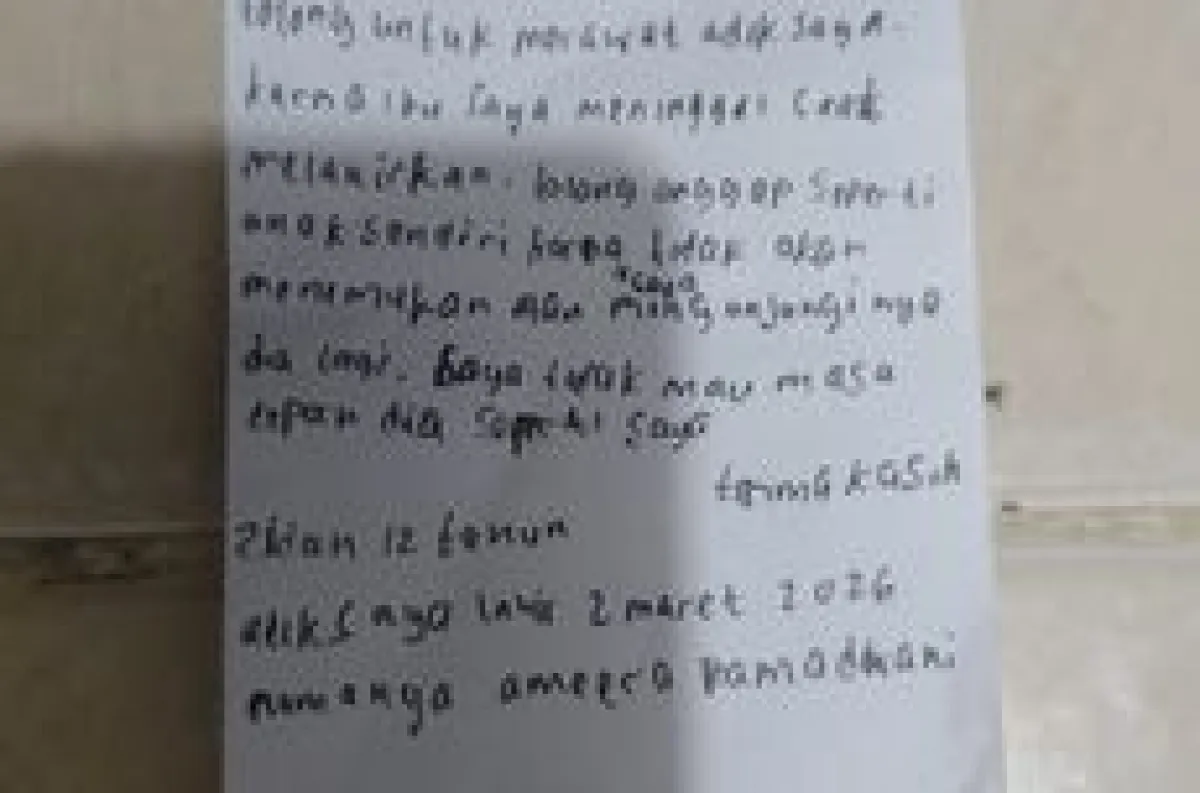 tolong untuk merawat adik saya.
karna ibu saya meninggal saat
melahirkan. tolong anggap seperti
anak sendiri karna tidak akan
menemukan atau mengunjungi nya
*saya
da lagi. saya tidak mau masa
depan dia seperti saya
terima kasih
Zkian 12 tahun
adik saya lahir 2 maret 2026
namanya ameera ramadhani